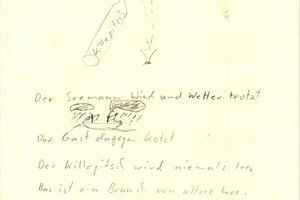 Killepitsch
Der Seemann Wind und Wetter trotzt
Der Gast dagegen kotzt
Der Killepitsch wird niemals leer
Das ist ein Brauch von alters her.